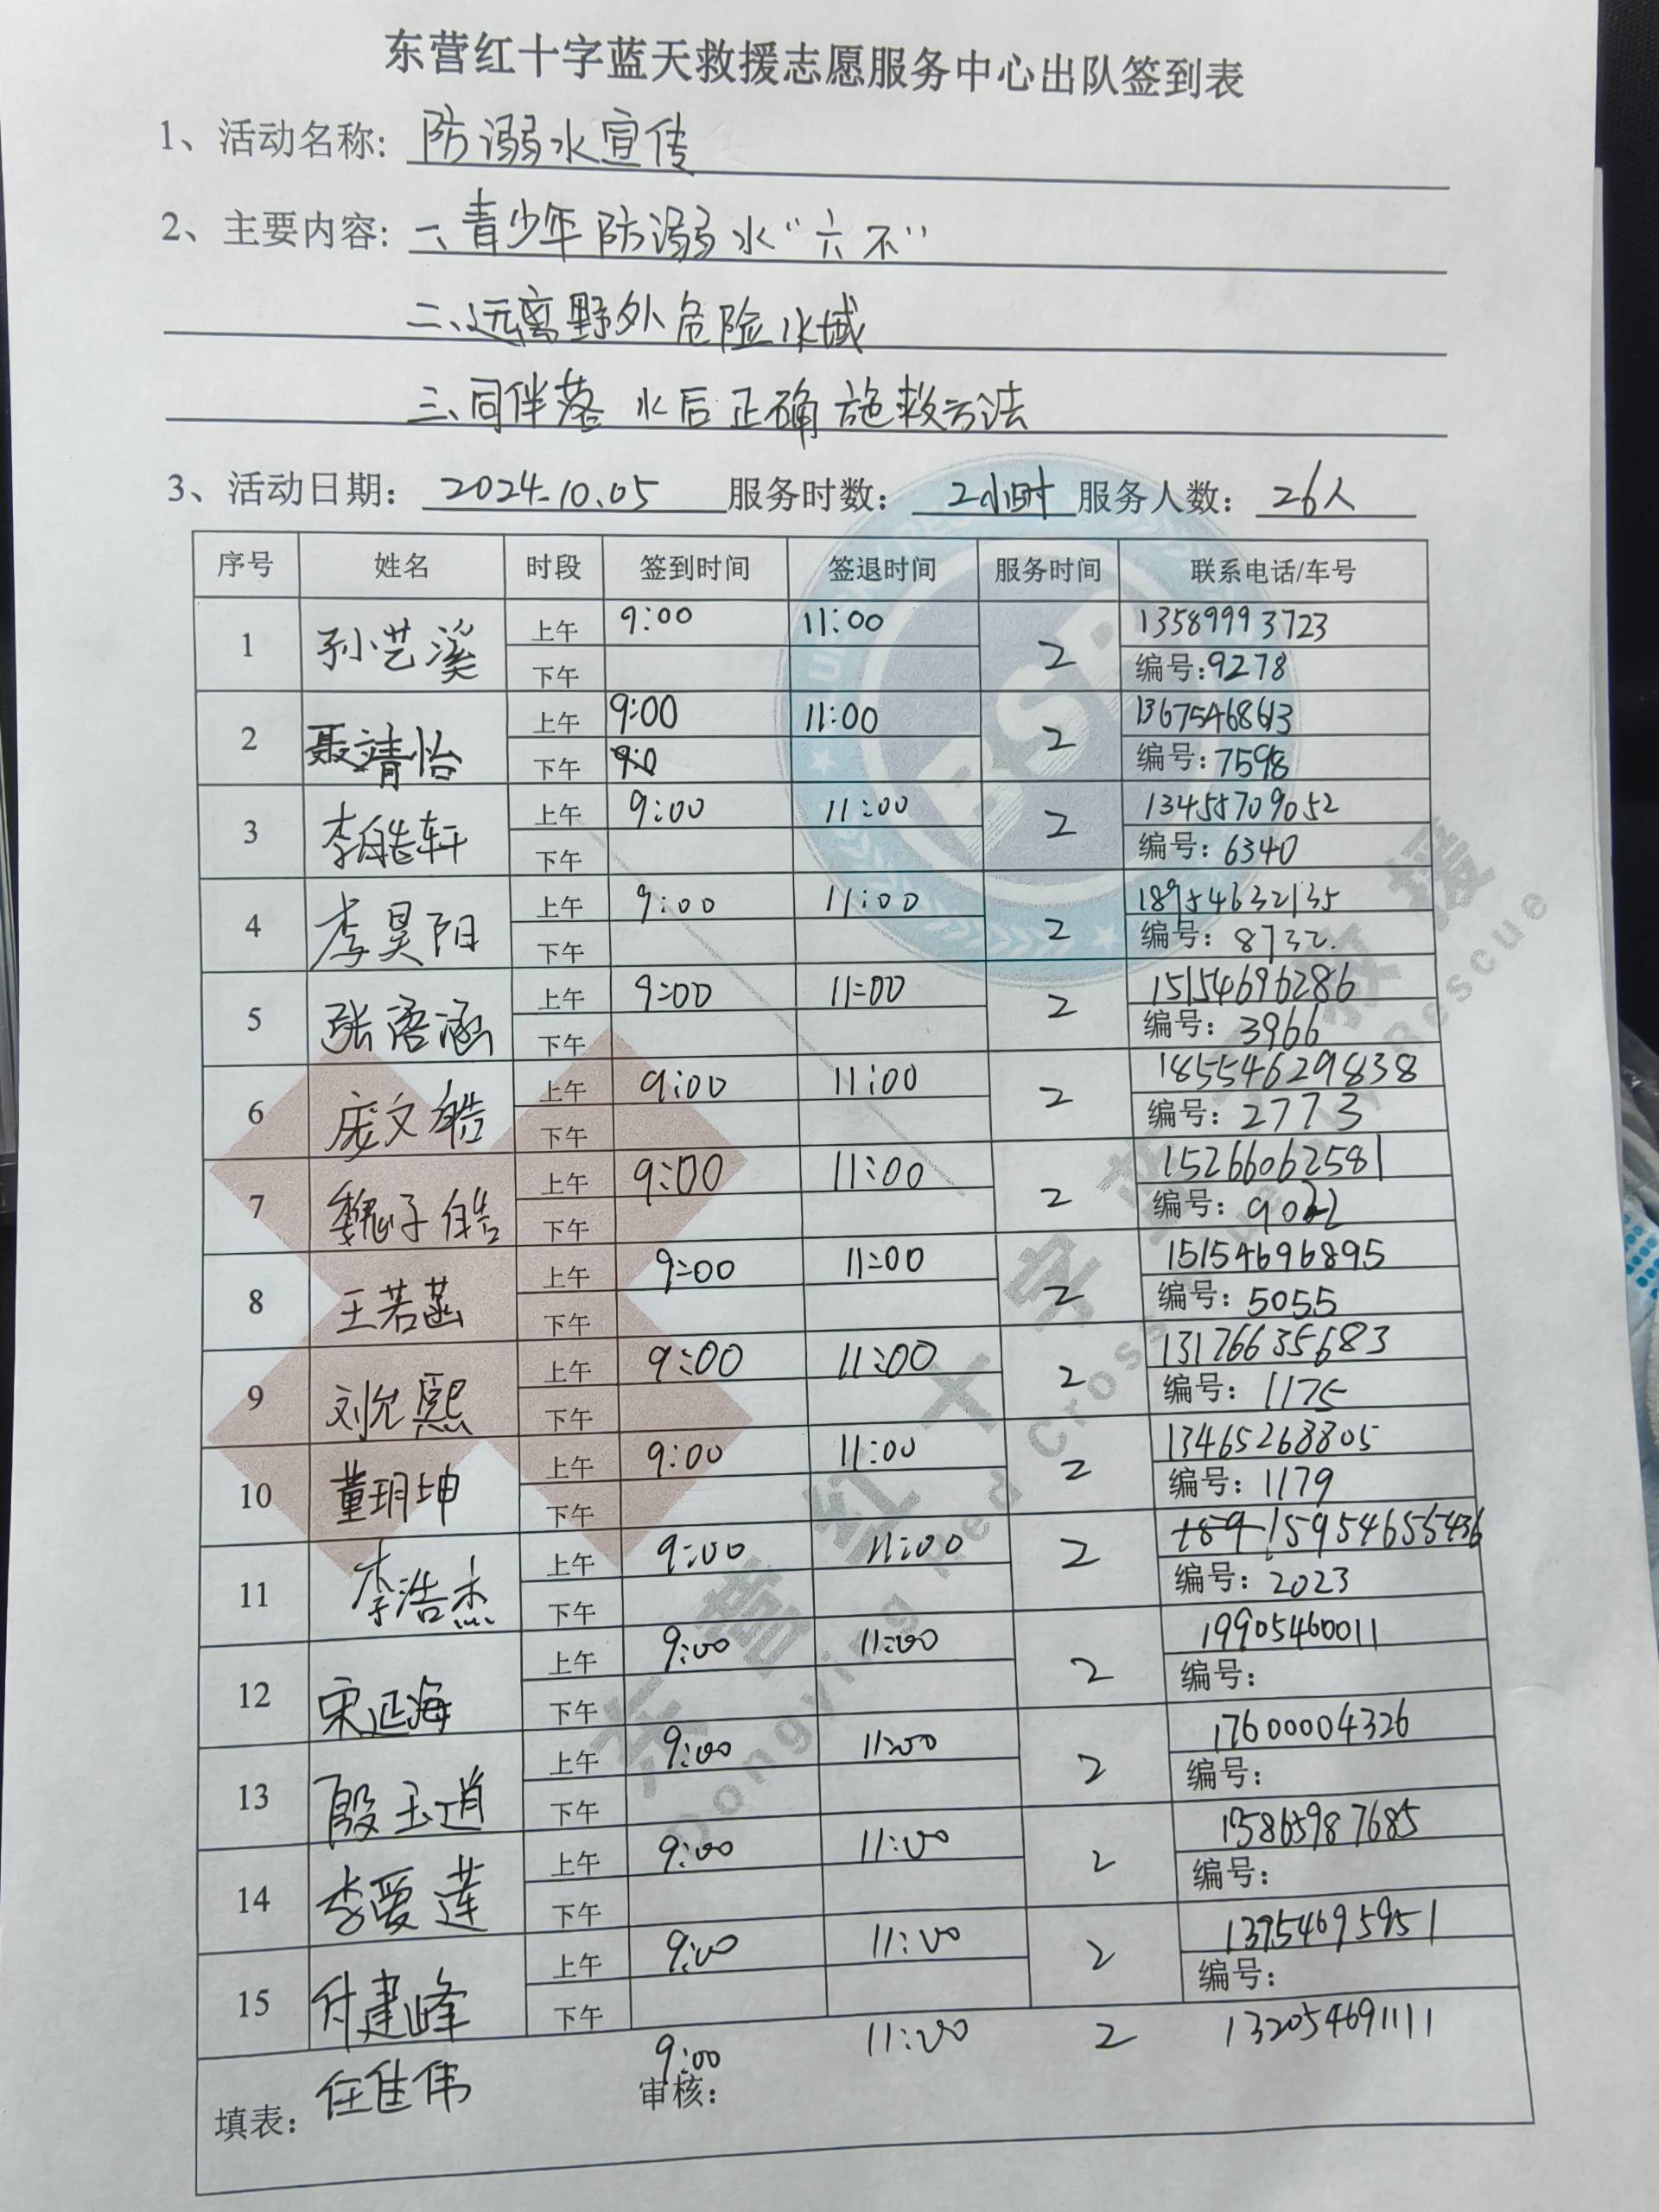 东营红十字蓝天救援志愿服务中心出队签到表
1、活动名称: 防溺水宣传
2、主要内容: 一、青少年防溺水“六不”
二、远离野外危险水域
三、同伴落水后正确施救方法
3、活动日期: 2024.10.05 服务时数: 2小时 服务人数: 26人
序号 姓名 时段 签到时间 签退时间 服务时间 联系电话/车号
1 孙艺溪 上午 9:00 11:00 2 13589993723
下午 编号:9278
2 聂靖怡 上午 9:00 11:00 2 13675468613
下午 编号:7598
3 李皓轩 上午 9:00 11:00 2 13455709052
下午 编号:6340
4 李昊阳 上午 9:00 11:00 2 18954632135
下午 编号:8732.
5 张语涵 上午 9:00 11:00 2 15154696286
下午 编号:3966
6 庞文皓 上午 9:00 11:00 2 185546298838
下午 编号:2773
7 魏子皓 上午 9:00 11:00 2 15266062581
下午 编号:
8 王若菡 上午 9:00 11:00 2 15154696895
下午 编号:5055
9 刘允熙 上午 9:00 11:00 2 13176635683
下午 编号:1175
10 董玥坤 上午 9:00 11:00 2 13465268805
下午 编号:1179
11 李浩杰 上午 9:00 11:00 2 189 15954655436
下午 编号:2023
12 宋延海 上午 9:00 11:00 2 19905460011
下午 编号:
13 殷玉道 上午 9:00 11:00 2 17600004326
下午 编号:
14 李爱莲 上午 9:00 11:00 2 13586598 7685
下午 编号:
15 付建峰 上午 9:00 11:00 2 13954695951
下午 编号:
任佳伟 9:00 11:00 2 132054691111
填表: 审核:
BSR
东营红十字蓝天救援
Dongying Red Cross Blue Sky Rescue